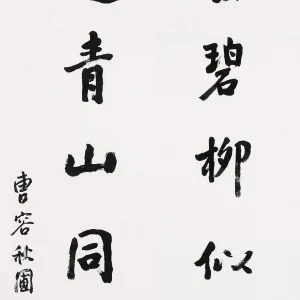 碧柳似
青山同
曹容秋圃